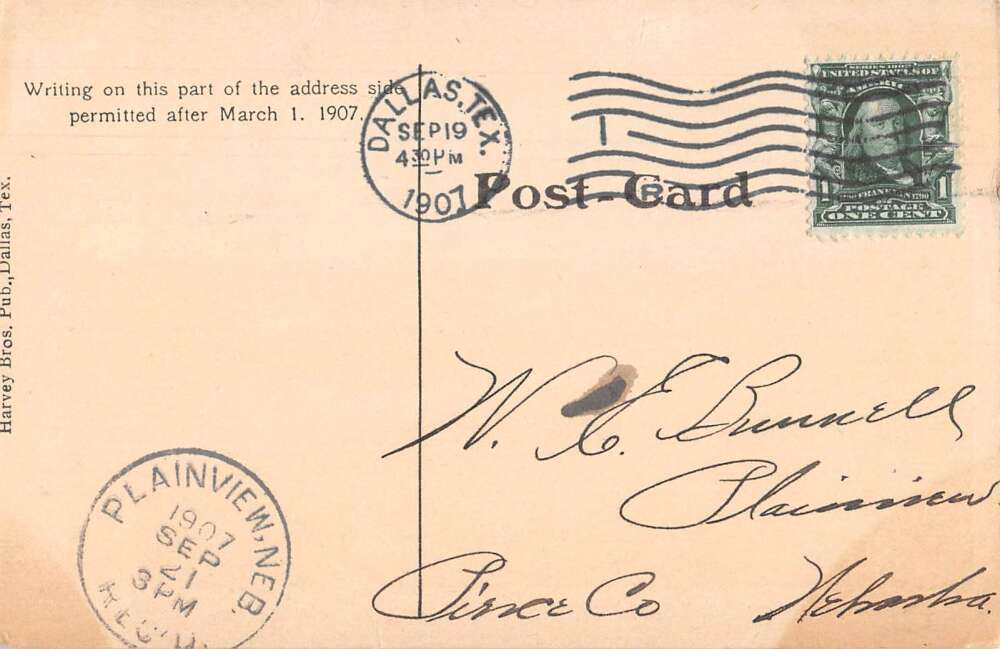 Writing on this part of the address side
permitted after March 1. 1907.
DALLAS, TEX.
SEP 19
4 30 PM
1907
Post-Card
SERIES 1902
UNITED STATES OF
AMERICA
1 1
FRANKLIN
POSTAGE
ONE CENT
Harvey Bros. Pub., Dallas, Tex.
W. E. Bunnell
Plainview
Pierce Co Nebraska.
PLAINVIEW, NEB.
1907
SEP
21
3 PM
REC'D.